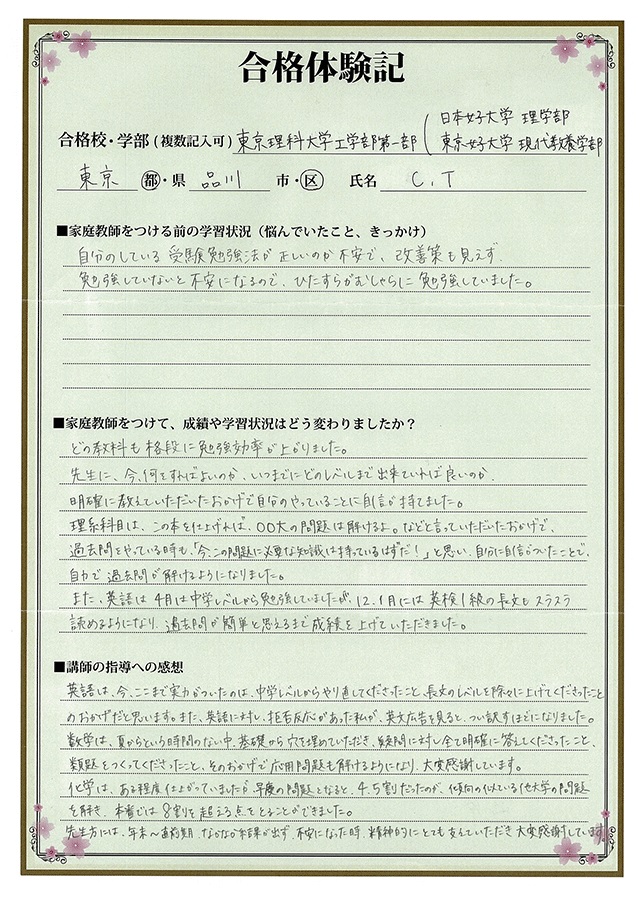 合格体験記
日本女子大学 理学部
合格校・学部（複数記入可）東京理科大学工学部第一部（東京女子大学 現代教養学部
東京 都・県 品川 市・区 氏名 C.T
■家庭教師をつける前の学習状況（悩んでいたこと、きっかけ）
自分のしている受験勉強法が正しいのか不安で、改善策も見えず、
勉強していないと不安になるので、ひたすらがむしゃらに勉強していました。
■家庭教師をつけて、成績や学習状況はどう変わりましたか？
どの教科も格段に勉強効率が上がりました。
先生に、今、何をすればよいのか、いつまでにどのレベルまで出来ていれば良いのか、
明確に教えていただいたおかげで自分のやっていることに自信が持てました。
理系科目は、この本を仕上げれば、〇〇大の問題は解けるよ。などと言っていただいたおかげで、
過去問をやっている時も、「今、この問題に必要な知識は持っているはずだ！」と思い、自分に自信がついたことで、
自力で過去問が解けるようになりました。
また、英語は4月は中学レベルから勉強していましたが、12、1月には英検1級の長文もスラスラ
読めるようになり、過去問が簡単と思えるまで成績を上げていただきました。
■講師の指導への感想
英語は、今、ここまで実力がついたのは、中学レベルからやり直してくださったこと、長文のレベルを徐々に上げてくださったこと
のおかげだと思います。また、英語に対し、拒否反応があった私が、英文広告を見ると、つい訳すほどになりました。
数学は、夏からという時間のない中、基礎から穴を埋めていただき、疑問に対し全て明確に答えてくださったこと、
類題をつくってくださったこと、そのおかげで応用問題も解けるようになり、大変感謝しています。
化学は、ある程度仕上がっていましたが、早慶の問題となると、4、5割だったのが、傾向の似ている他大学の問題
を解き、本番では8割を超える点をとることができました。
先生方には、年末〜直前期、なかなか結果が出ず、不安になった時、精神的にとても支えていただき大変感謝しています。